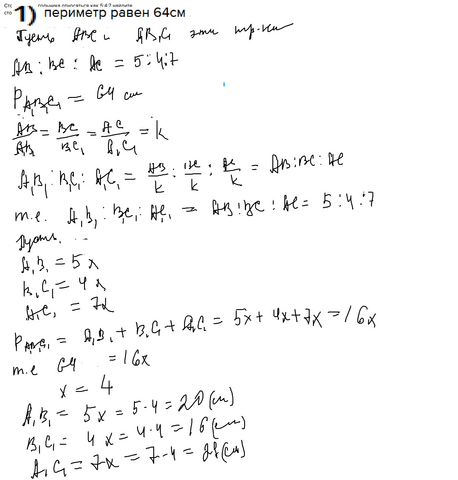 1) периметр равен 64см
Пусть ABC и A₁B₁C₁ эти тр-ки
AB : BC : AC = 5 : 4 : 7
P A₁B₁C₁ = 64 см
AB/A₁B₁ = BC/B₁C₁ = AC/A₁C₁ = k
A₁B₁ : B₁C₁ : A₁C₁ = AB/k : BC/k : AC/k = AB : BC : AC
т.е. A₁B₁ : B₁C₁ : A₁C₁ = AB : BC : AC = 5 : 4 : 7
Пусть ...
A₁B₁ = 5x
B₁C₁ = 4x
A₁C₁ = 7x
P A₁B₁C₁ = A₁B₁ + B₁C₁ + A₁C₁ = 5x + 4x + 7x = 16x
т.е 64 = 16x
x = 4
A₁B₁ = 5x = 5·4 = 20 (см)
B₁C₁ = 4x = 4·4 = 16 (см)
A₁C₁ = 7x = 7·4 = 28 (см)